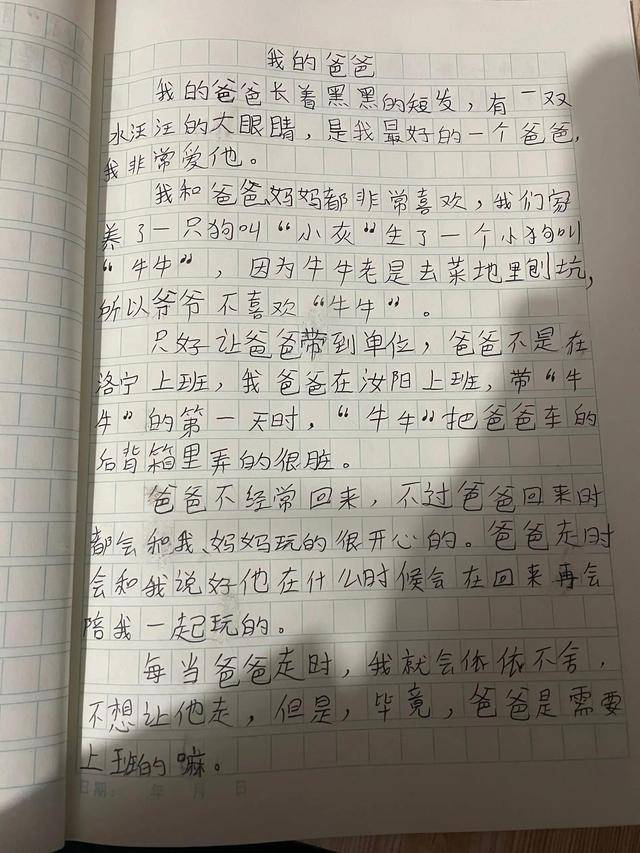 我的爸爸
我的爸爸长着黑黑的短发，有一双
水汪汪的大眼睛，是我最好的一个爸爸，
我非常爱他。
我和爸爸、妈妈都非常喜欢，我们家
养了一只狗叫“小灰”生了一个小狗叫
“牛牛”，因为牛牛老是去菜地里刨坑，
所以爷爷不喜欢“牛牛”。
只好让爸爸带到单位，爸爸不是在
洛宁上班，我爸爸在汝阳上班，带“牛
牛”的第一天时，“牛牛”把爸爸车的
后背箱里弄的很脏。
爸爸不经常回来，不过爸爸回来时
都会和我、妈妈玩的很开心的。爸爸走时
会和我说好他在什么时候会在回来再会
陪我一起玩的。
每当爸爸走时，我就会依依不舍，
不想让他走，但是，毕竟，爸爸是需要
上班的嘛。
日期： 年 月 日